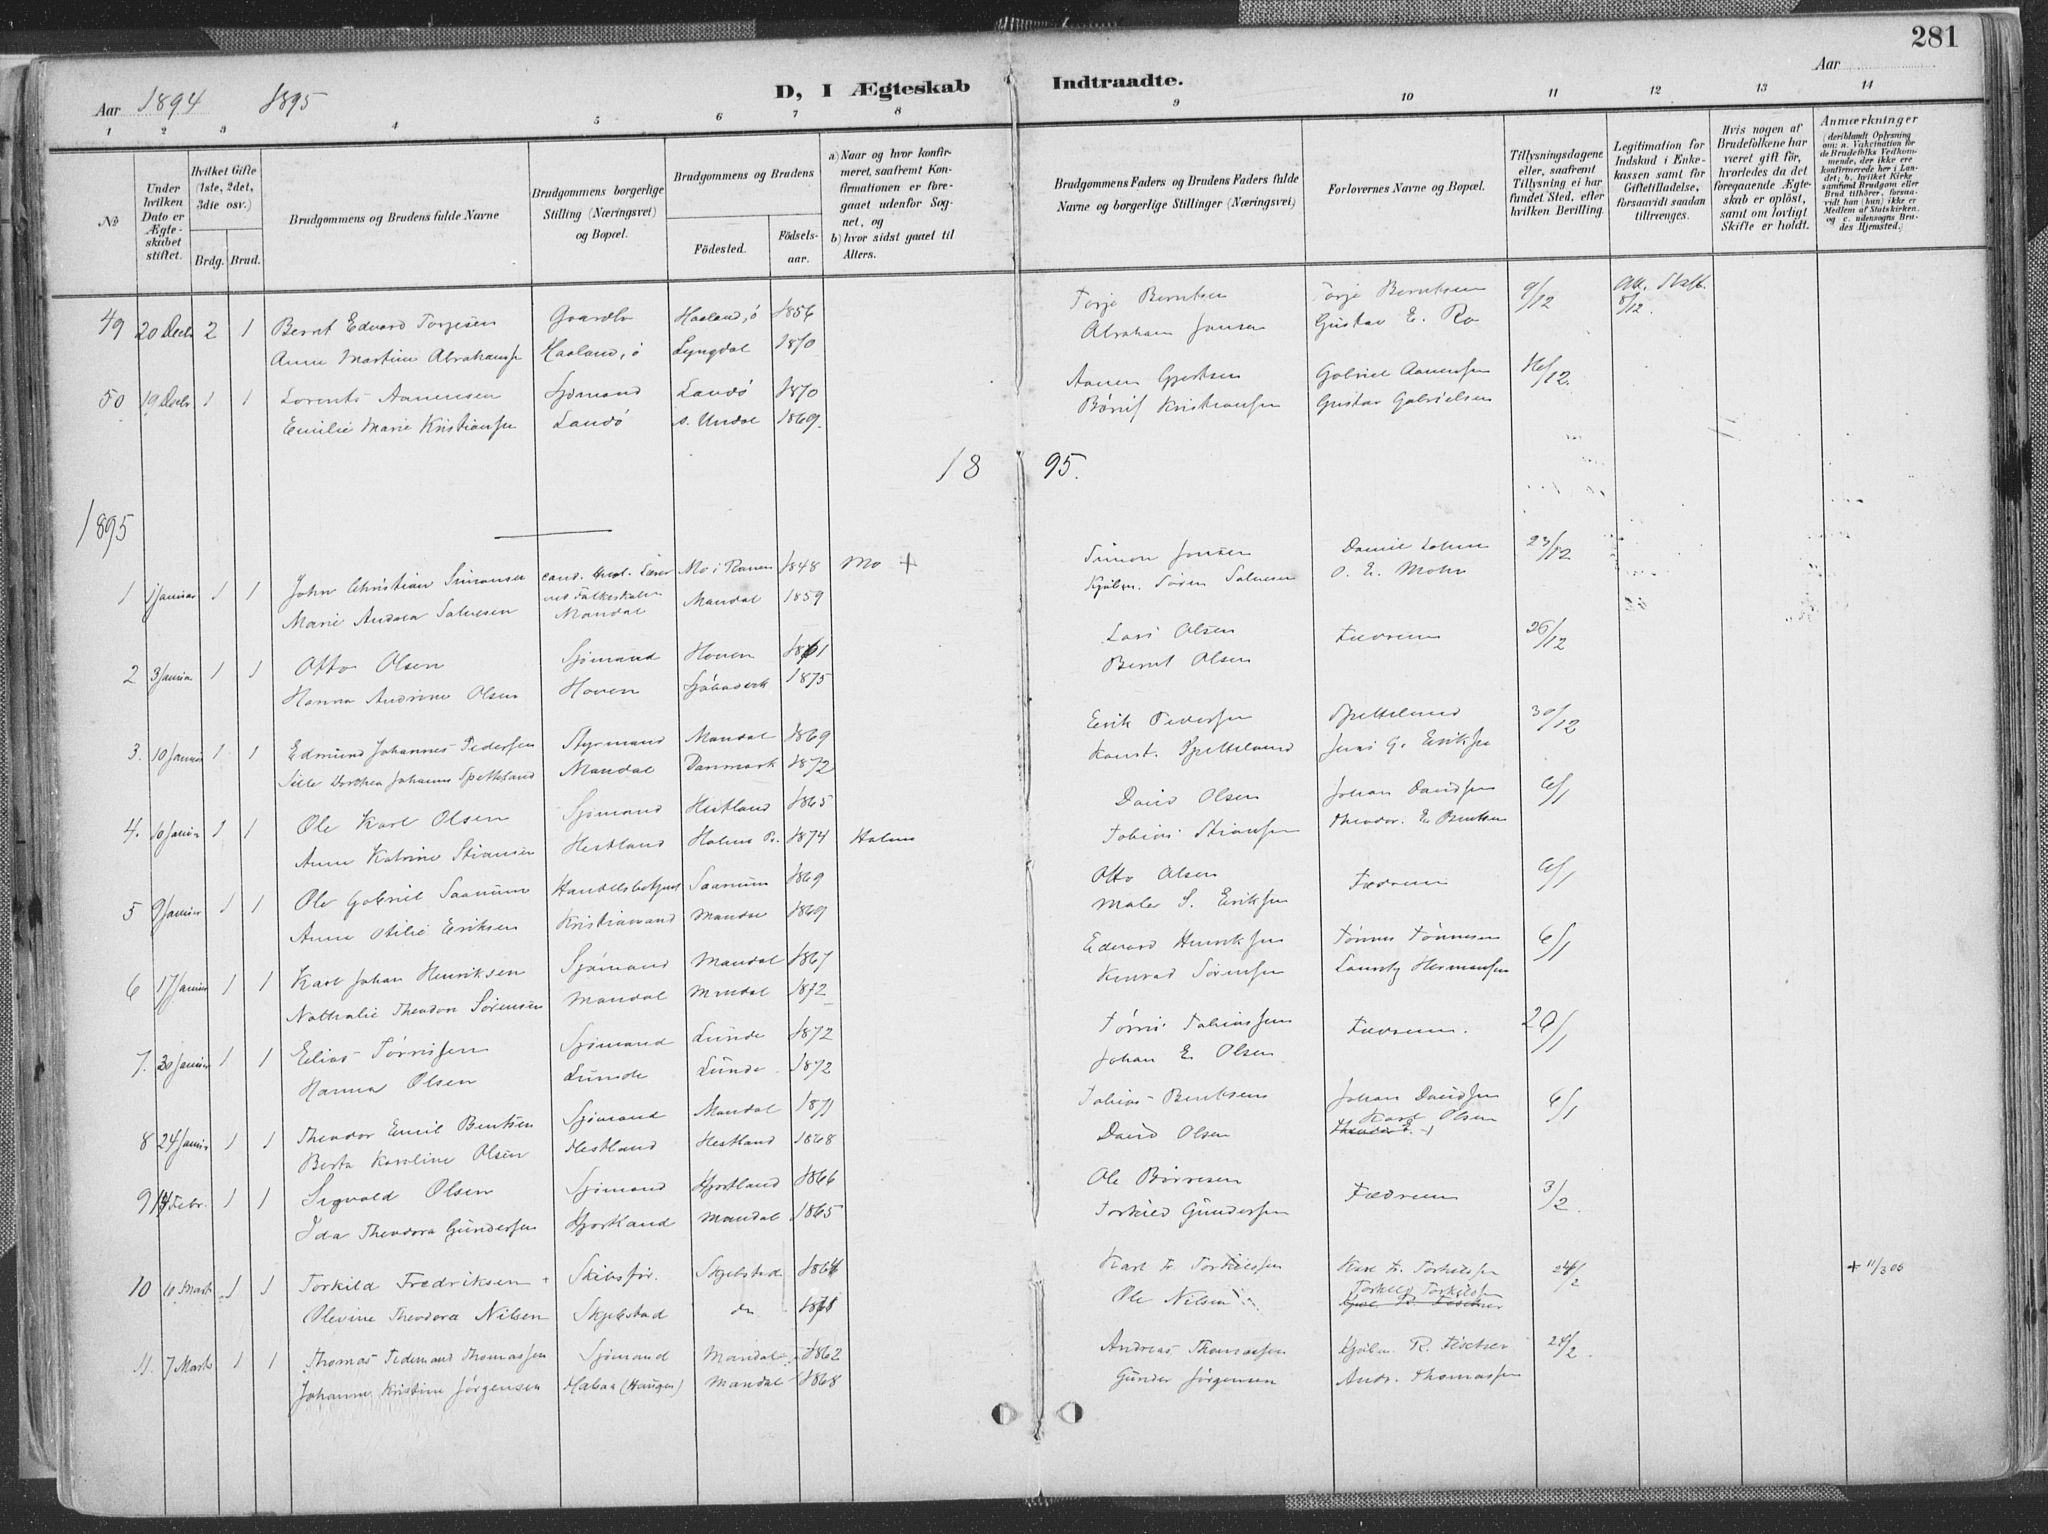 281
Aar 1894 1895
D, I Ægteskab Indtraadte.
Aar
1 2 3 4 5 6 7 8 9 10 11 12 13 14
№
Under hvilken Dato er Ægteskabet stiftet.
Hvilket Gifte (1ste, 2det, 3die osv.)
Brdg. Brud.
Brudgommens og Brudens fulde Navne
Brudgommens borgerlige Stilling (Næringsvei) og Bopæl.
Brudgommens og Brudens
Födested.
Födselsaar.
a) Naar og hvor konfirmeret, saafremt Konfirmationen er foregaaet udenfor Sognet, og
b) hvor sidst gaaet til Alters.
Brudgommens Faders og Brudens Faders fulde Navne og borgerlige Stillinger (Næringsvei)
Forlovernes Navne og Bopæl.
Tillysningsdagene eller, saafremt Tillysning ei har fundet Sted, efter hvilken Bevilling.
Legitimation for Indskud i Enkekassen samt for Giftetilladelse, forsaavidt saadan tiltrænges.
Hvis nogen af Brudefolkene har været gift för, hvorledes da det foregaaende Ægteskab er oplöst, samt om lovligt Skifte er holdt.
Anmærkninger (deriblandt Oplysning om: a. Vakcination for de Brudefolks Vedkommende, der ikke ere konfirmerede her i Landet; b. hvilket Kirkesamfund Brudgom eller Brud tilhörer, forsaavidt han (hun) ikke er Medlem af Statskirken, og c. udensogns Brudes Hjemsted.)
49 20 Decb. 2 1 Bernt Edvard Torjesen Haaland, ö 1856 Torje Berntsen Torje Berntsen 9/12 Att. Skift. 8/12.
Anne Martine Abrahams Haaland, ö Lyngdal 1870 Abraham Jansen Gustav E. Ro
50 19 Decb. 1 1 Lorents Aanensen Sjømand Landö 1870 Aanen Gjertsen Gabriel Aanensen 16/12.
Emilie Marie Kristiansen Landö s. Undal 1869. Böruf Kristiansen Gustav Gabrielsen
18 95.
1895
1 1 Januar 1 1 John Christian Simonsen cand. theol. Lærer Mo i Ranen 1848 Mo + Simon Jonsen 23/12
ved Folkeskolen
Marie Andrea Salvesen Mandal Mandal 1859 Kjöbm. Sören Salvesen O. E. Mohr
2 3 Januar 1 1 Otto Olsen Sjömand Hoven 1861 Lars Olsen Fædrene 26/12
Hanna Andrine Olsen Hoven 1875 Bernt Olsen
3. 10 Januar 1 1 Edmund Johannes Pedersen Styrmand Mandal 1869 Eerik Pedersen Spetteland 30/12
Sille Dorthea Johanne Spetteland Mandal Danmark 1872 Konst. Spetteland Jens G. Eriksen
4. 10 Januar 1 1 Ole Karl Olsen Sjømand Hestland 1865 David Olsen Johan Davidsen 6/1
Anne Katrine Stiansen Hestland Holms Pr. 1874 Holme Tobias Stiansen Theodor E. Bentsen
5 9 Januar 1 1 Ole Gabriel Saanum Handelsbetjent Saanum 1869 Otto Olsen Fædrene 6/1
Anne Otilie Eriksen Kristiansand Mandal 1869 Maler S. Eriksen
6 17 Januar 1 1 Karl Johan Henriksen Sjømand Mandal 1867 Edvard Henriksen Tönnes Tönnesen 6/1
Nathalie Theodora Sörensen Mandal Mandal 1872 Konrad Sörensen Lauritz Hermansen
7. 30 Januar 1 1 Elias Törrisen Sjømand Lunde 1872 Törris Tobiassen Fædrene. 20/1
Hanna Olsen Lunde Lunde 1872 Johan E. Olsen
8 24 Januar 1 1 Theodor Emil Bentsen Sjømand Mandal 1871 Tobias Bentsen Johan Davidsen 6/1
Berta Karoline Olsen Hestland Hestland 1868 David Olsen Karl Olsen
Theodor E.
9 14 Febr. 1 1 Sigvald Olsen Sjømand Hjortland 1866 Ole Börresen Fædrene 3/2.
Ida Theodora Gundersen Hjortland Mandal 1865 Torkild Gundersen
10 6 Marts 1 1 Torkild Fredriksen Skibsför. Skjebstad 1864 Karl Fr. Torkildsen Karl Fr. Torkildsen 24/2 + 11/3 06
Olevine Theodora Nilsen Skjebstad do 1868 Ole Nilsen Torkild Torkildsen
11. 7 Marts 1 1 Thomas Tidemand Thomassen Sjømand Mandal 1862 Andreas Thomassen Kjöbm. R. Fischer 24/2.
Johanne Kristine Jörgensen Halsaa (Haugen) Mandal 1868 Gunder Jörgensen Andr. Thomassen